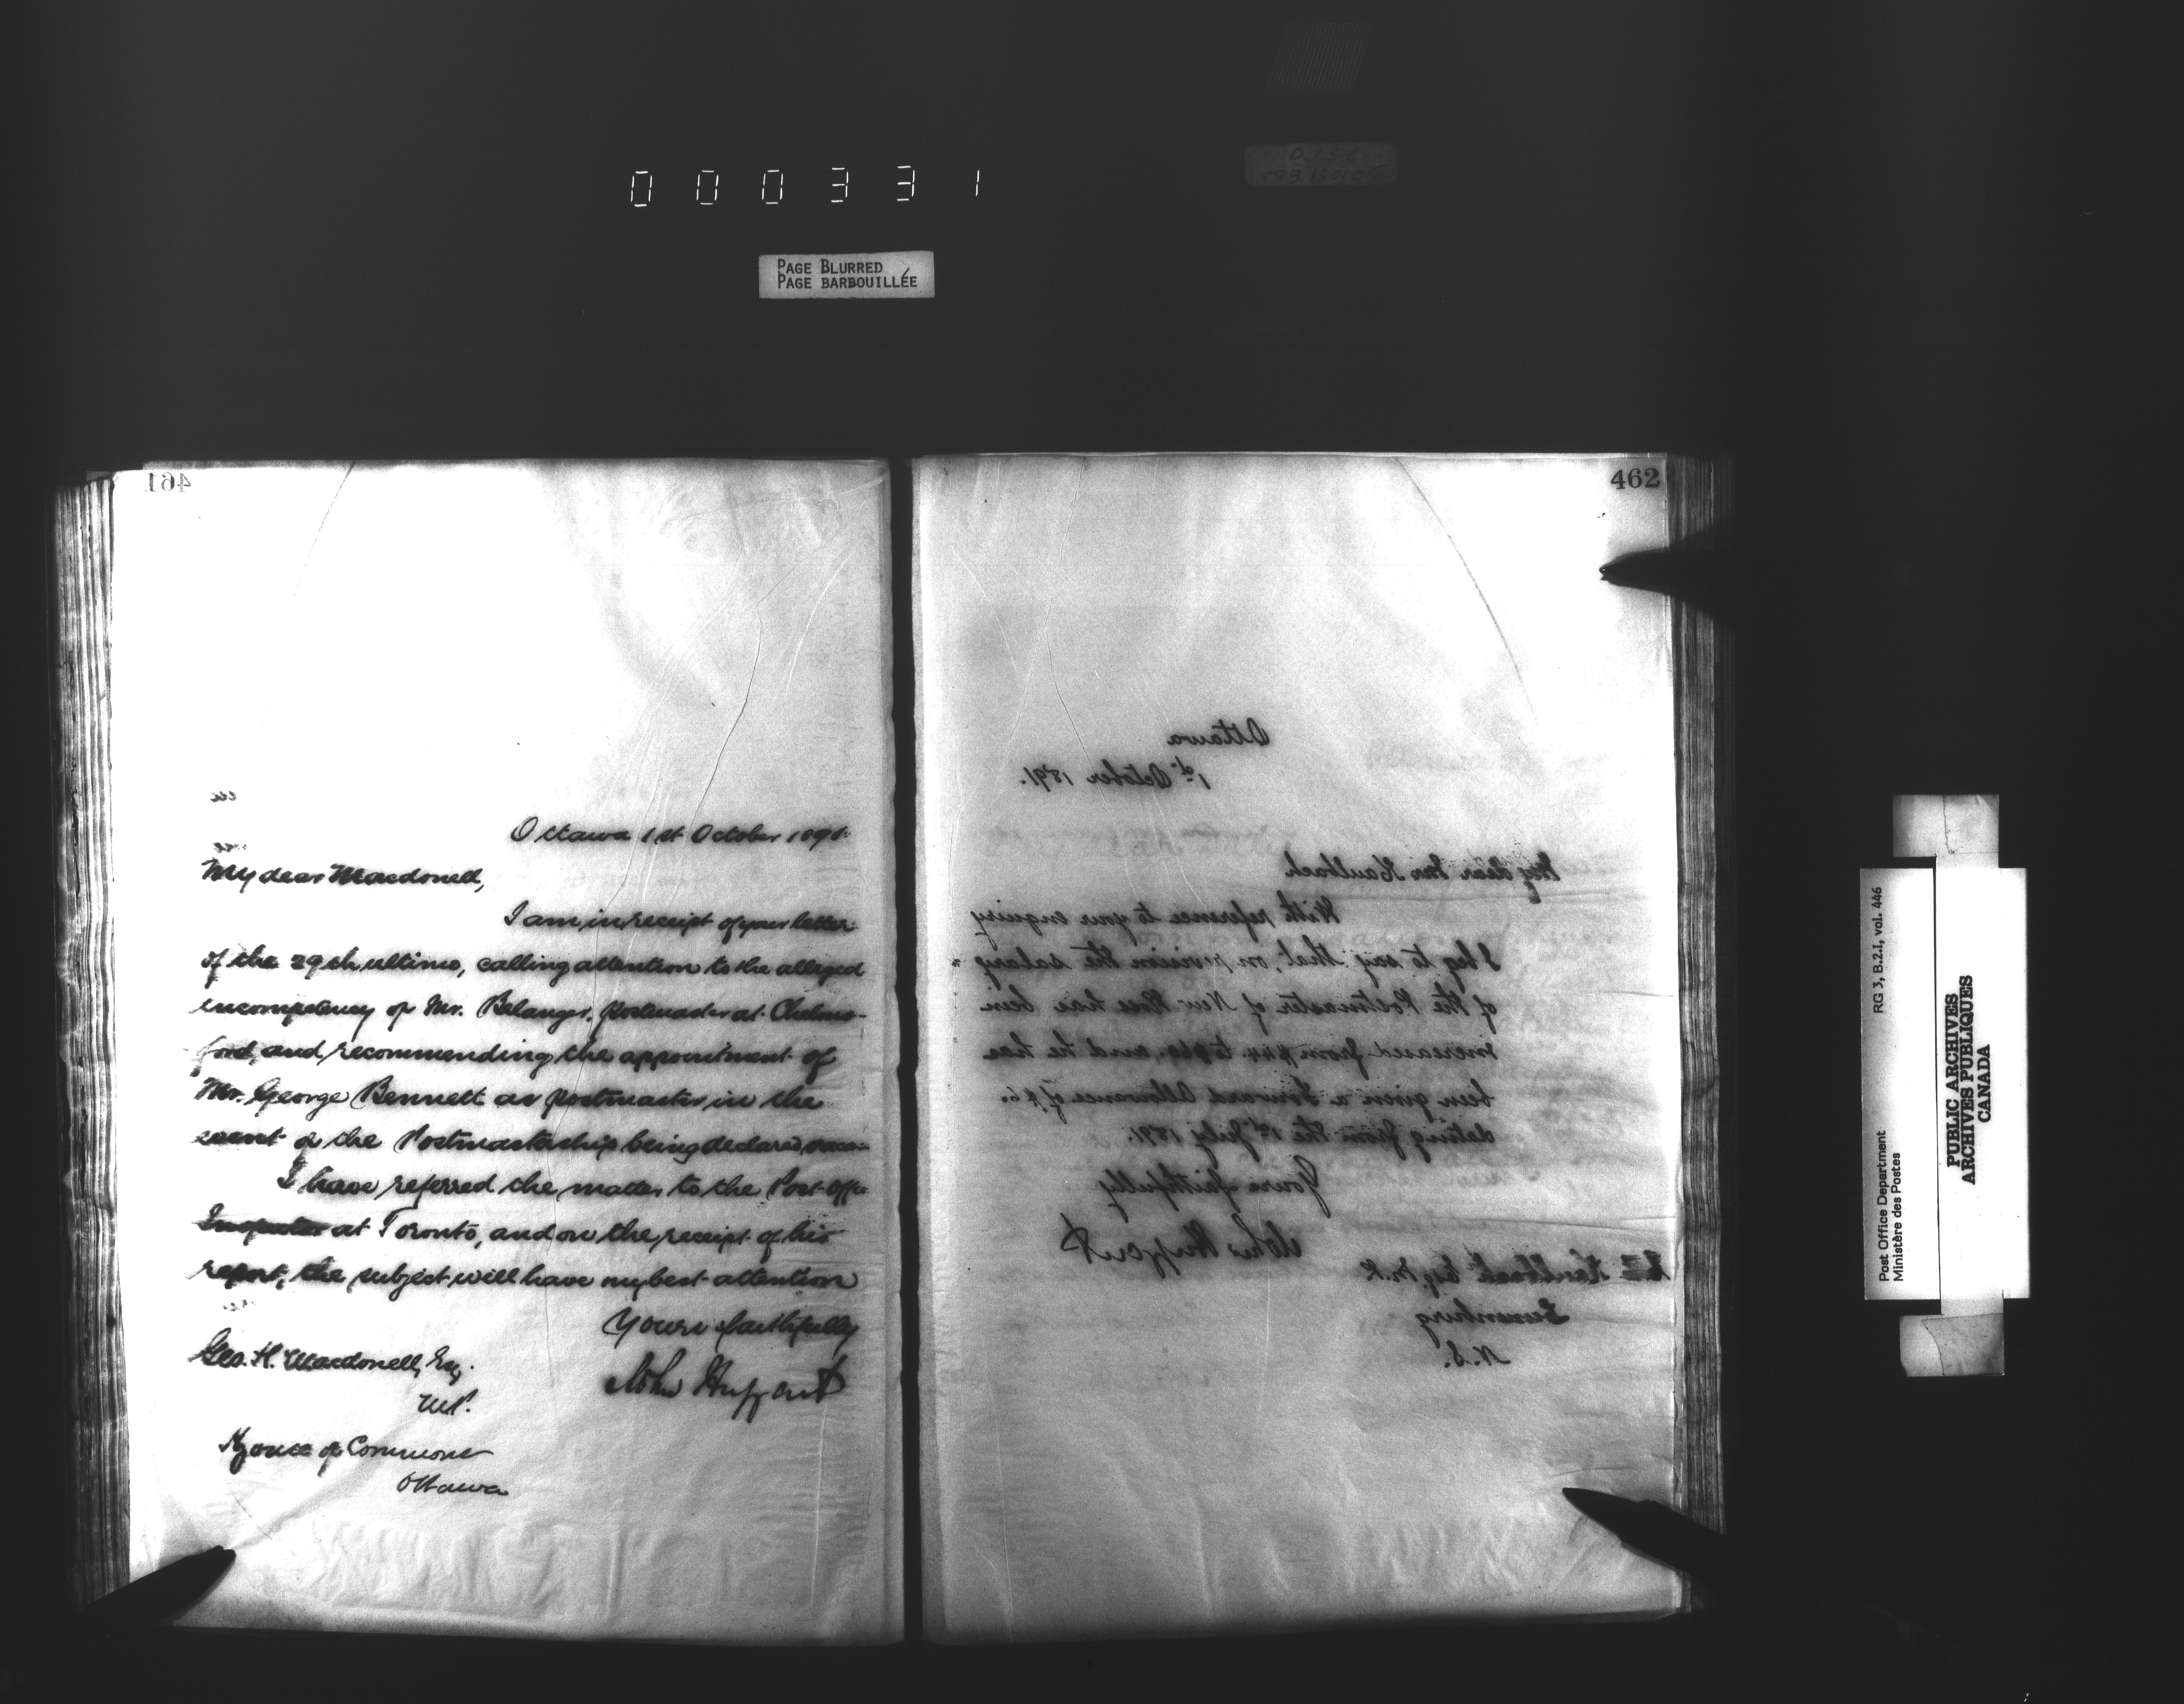 000331
PAGE BLURRED
PAGE BARBOUILLÉE
461
Ottawa 1st October 1891.
My dear Macdonell,
I am in receipt of your letter
of the 29th ultimo, calling attention to the alleged
incompetency of Mr. Belanger, Postmaster at Chelms-
ford, and recommending the appointment of
Mr. George Bennett as Postmaster in the
event of the Postmastership being declared
I have referred the matter to the Post Office
Inspector at Toronto, and on the receipt of his
report, the subject will have my best attention
Yours faithfully
John Haggart
Geo. H. Macdonell, Esq.
M.P.
House of Commons
Ottawa
462
Ottawa
1st October 1891.
My dear Mr Kaulbach
With reference to your enquiry
I beg to say that, on revision the salary
of the Postmaster of New Ross has been
increased from $44. to $60. and he has
been given a Forward Allowance of $6.
dating from the 1st July 1891.
Yours faithfully
John Haggart
Kaulbach Esq. M.P.
Lunenburg
N.S.
RG 3, B.2.1, vol. 446
Post Office Department
Ministère des Postes
PUBLIC ARCHIVES
ARCHIVES PUBLIQUES
CANADA